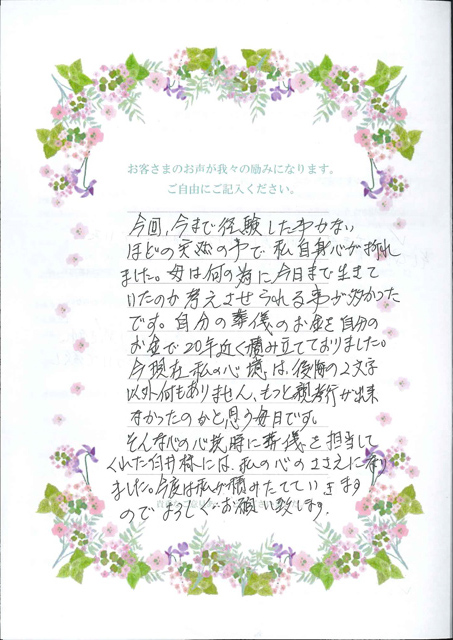 お客さまのお声が我々の励みになります。
ご自由にご記入ください。
今回、今まで経験した事がない
ほどの突然の事で私自身心が折れ
ました。母は何の為に今日まで生きて
いたのか考えさせられる事が多かった
です。自分の葬儀のお金を自分の
お金で20年近く積み立てておりました。
今現在私の心境は、後悔の2文字
以外何もありません、もっと親孝行が出来
なかったのかと思う毎日です。
そんな心の心境時に葬儀を担当して
くれた臼井様には、私の心のささえになり
ました。今度は私が積みたてていきます
のでよろしくお願い致します。